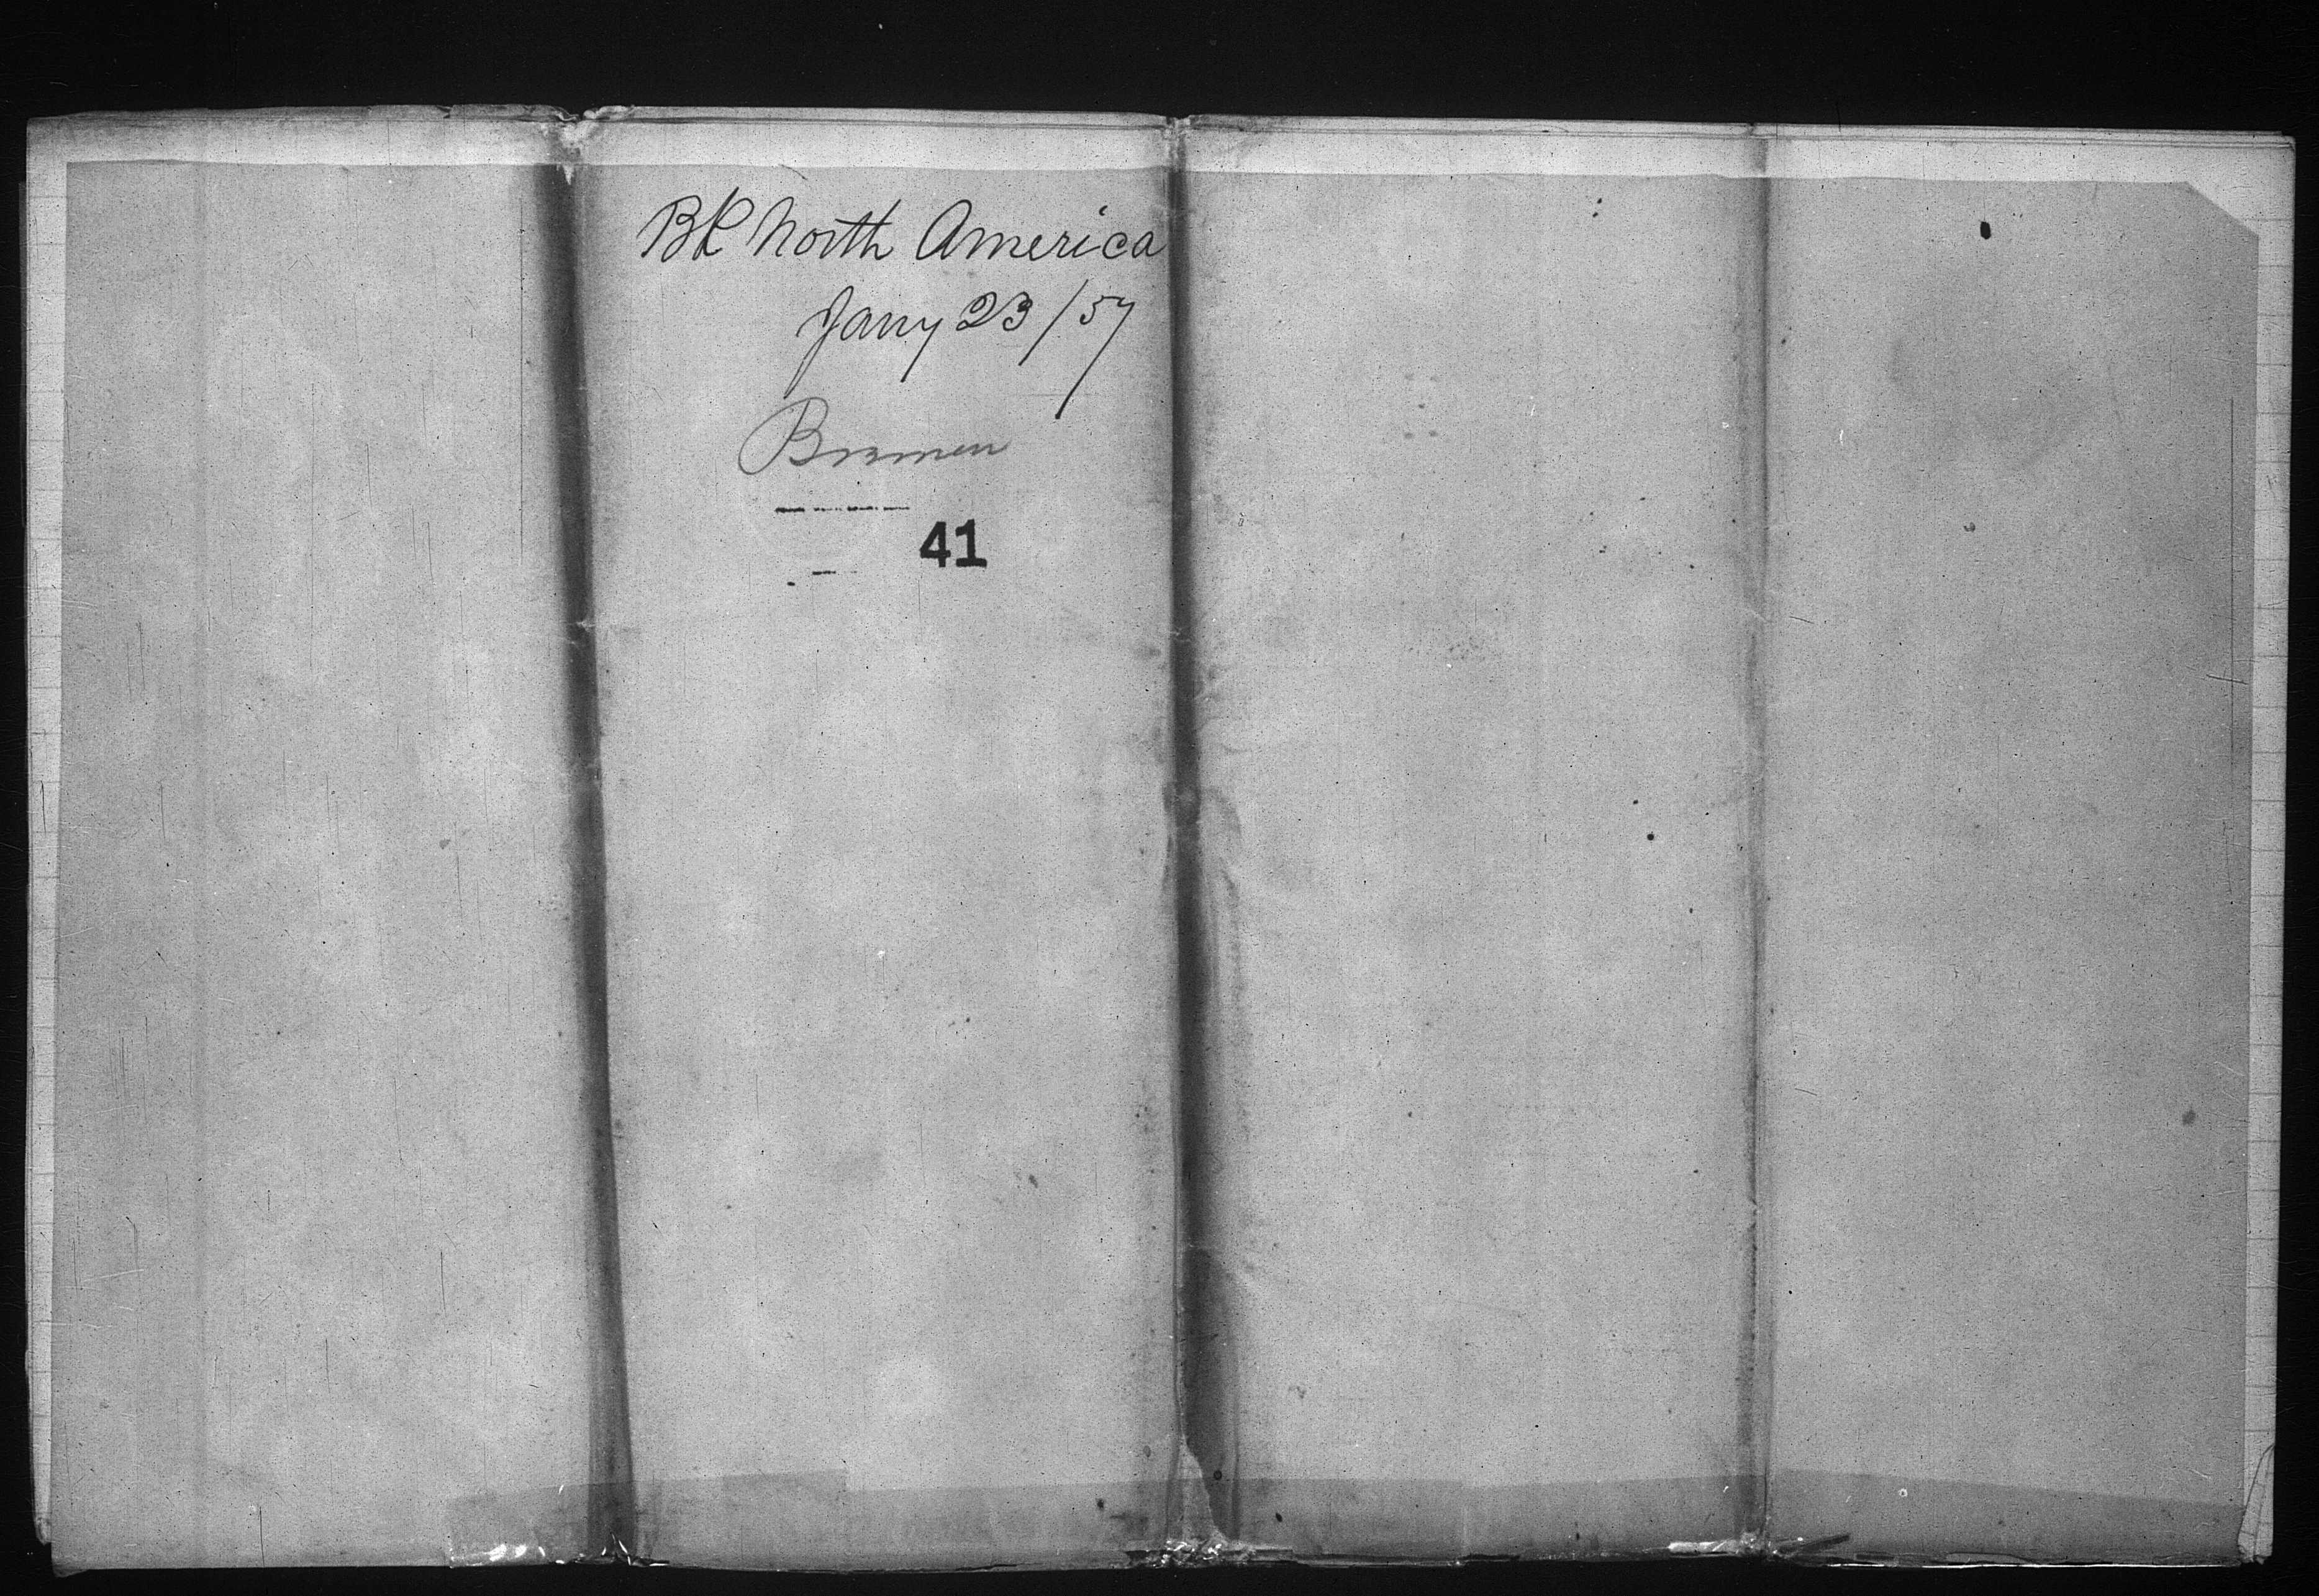 Bk North America
Jany 23/57
Bremen
41